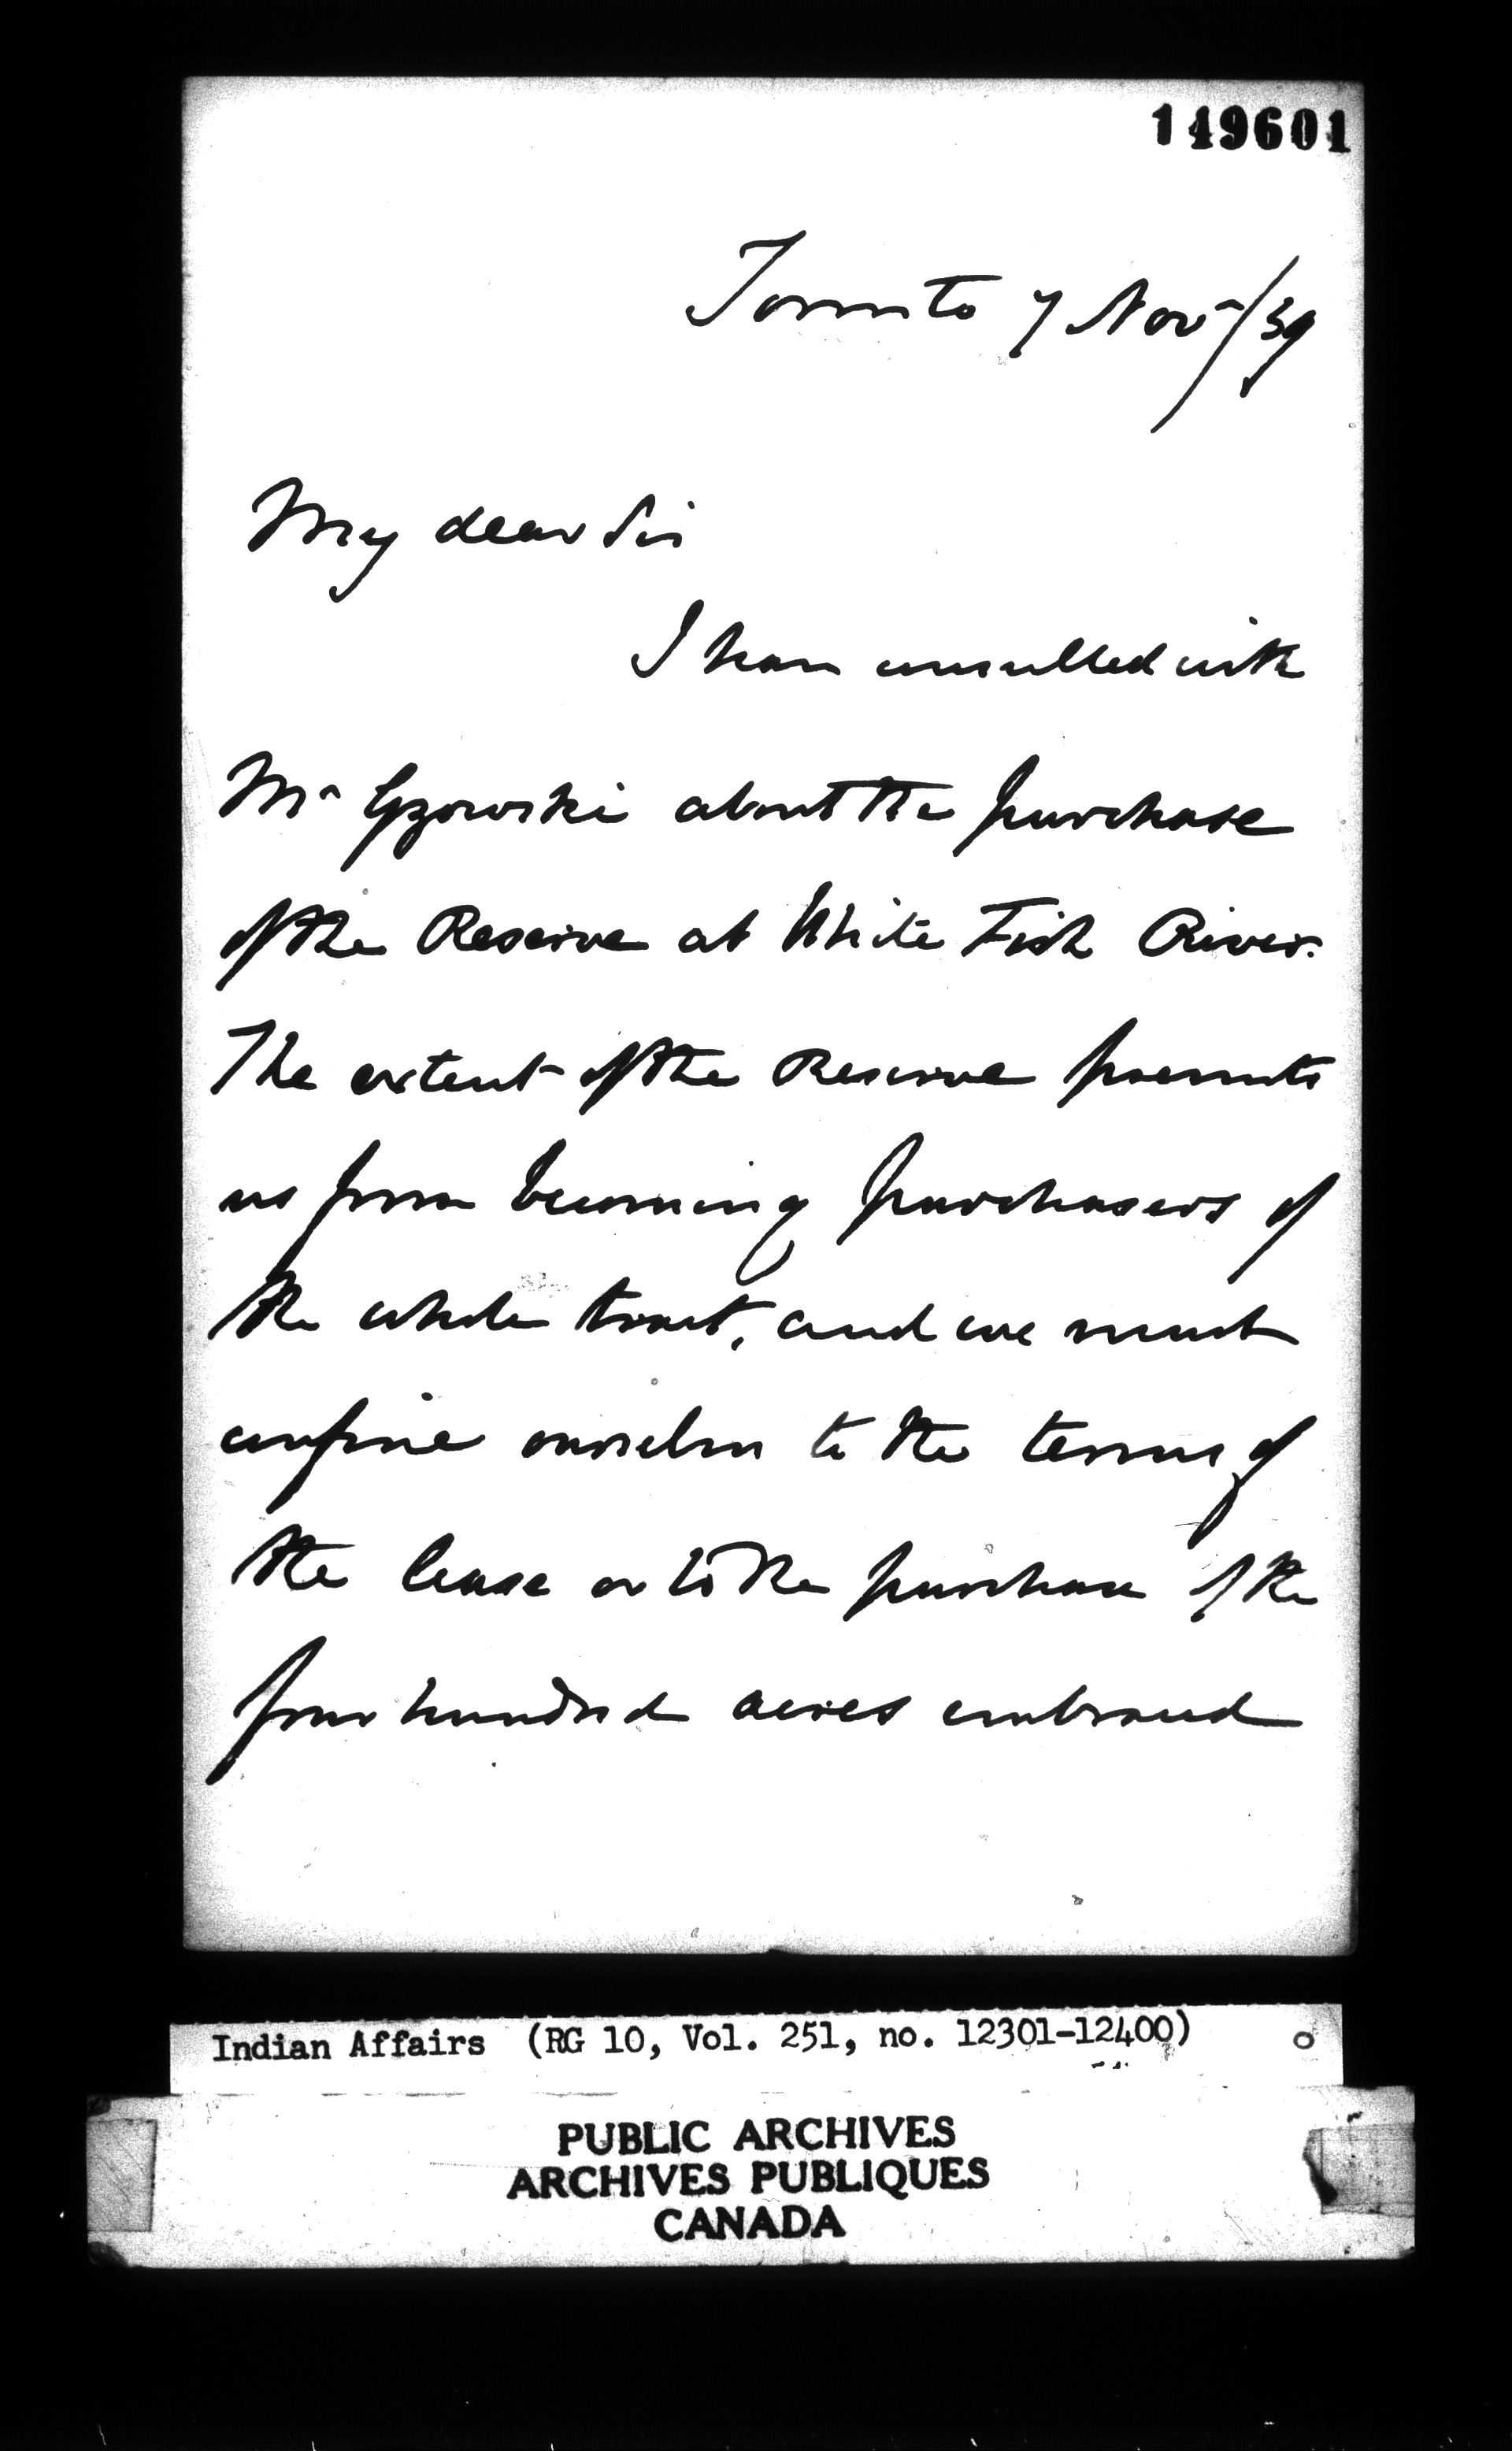 149601
Toronto 7 Nov /59
My dear Sir
I have consulted with
Mr Gzowski about the purchase
of the Reserve at White Fish River.
The extent of the Reserve prevents
us from becoming purchasers of
the whole tract, and we must
confine ourselves to the terms of
the lease or to the purchase of the
four hundred acres embraced
Indian Affairs (RG 10, Vol. 251, no. 12301-12400)
PUBLIC ARCHIVES
ARCHIVES PUBLIQUES
CANADA